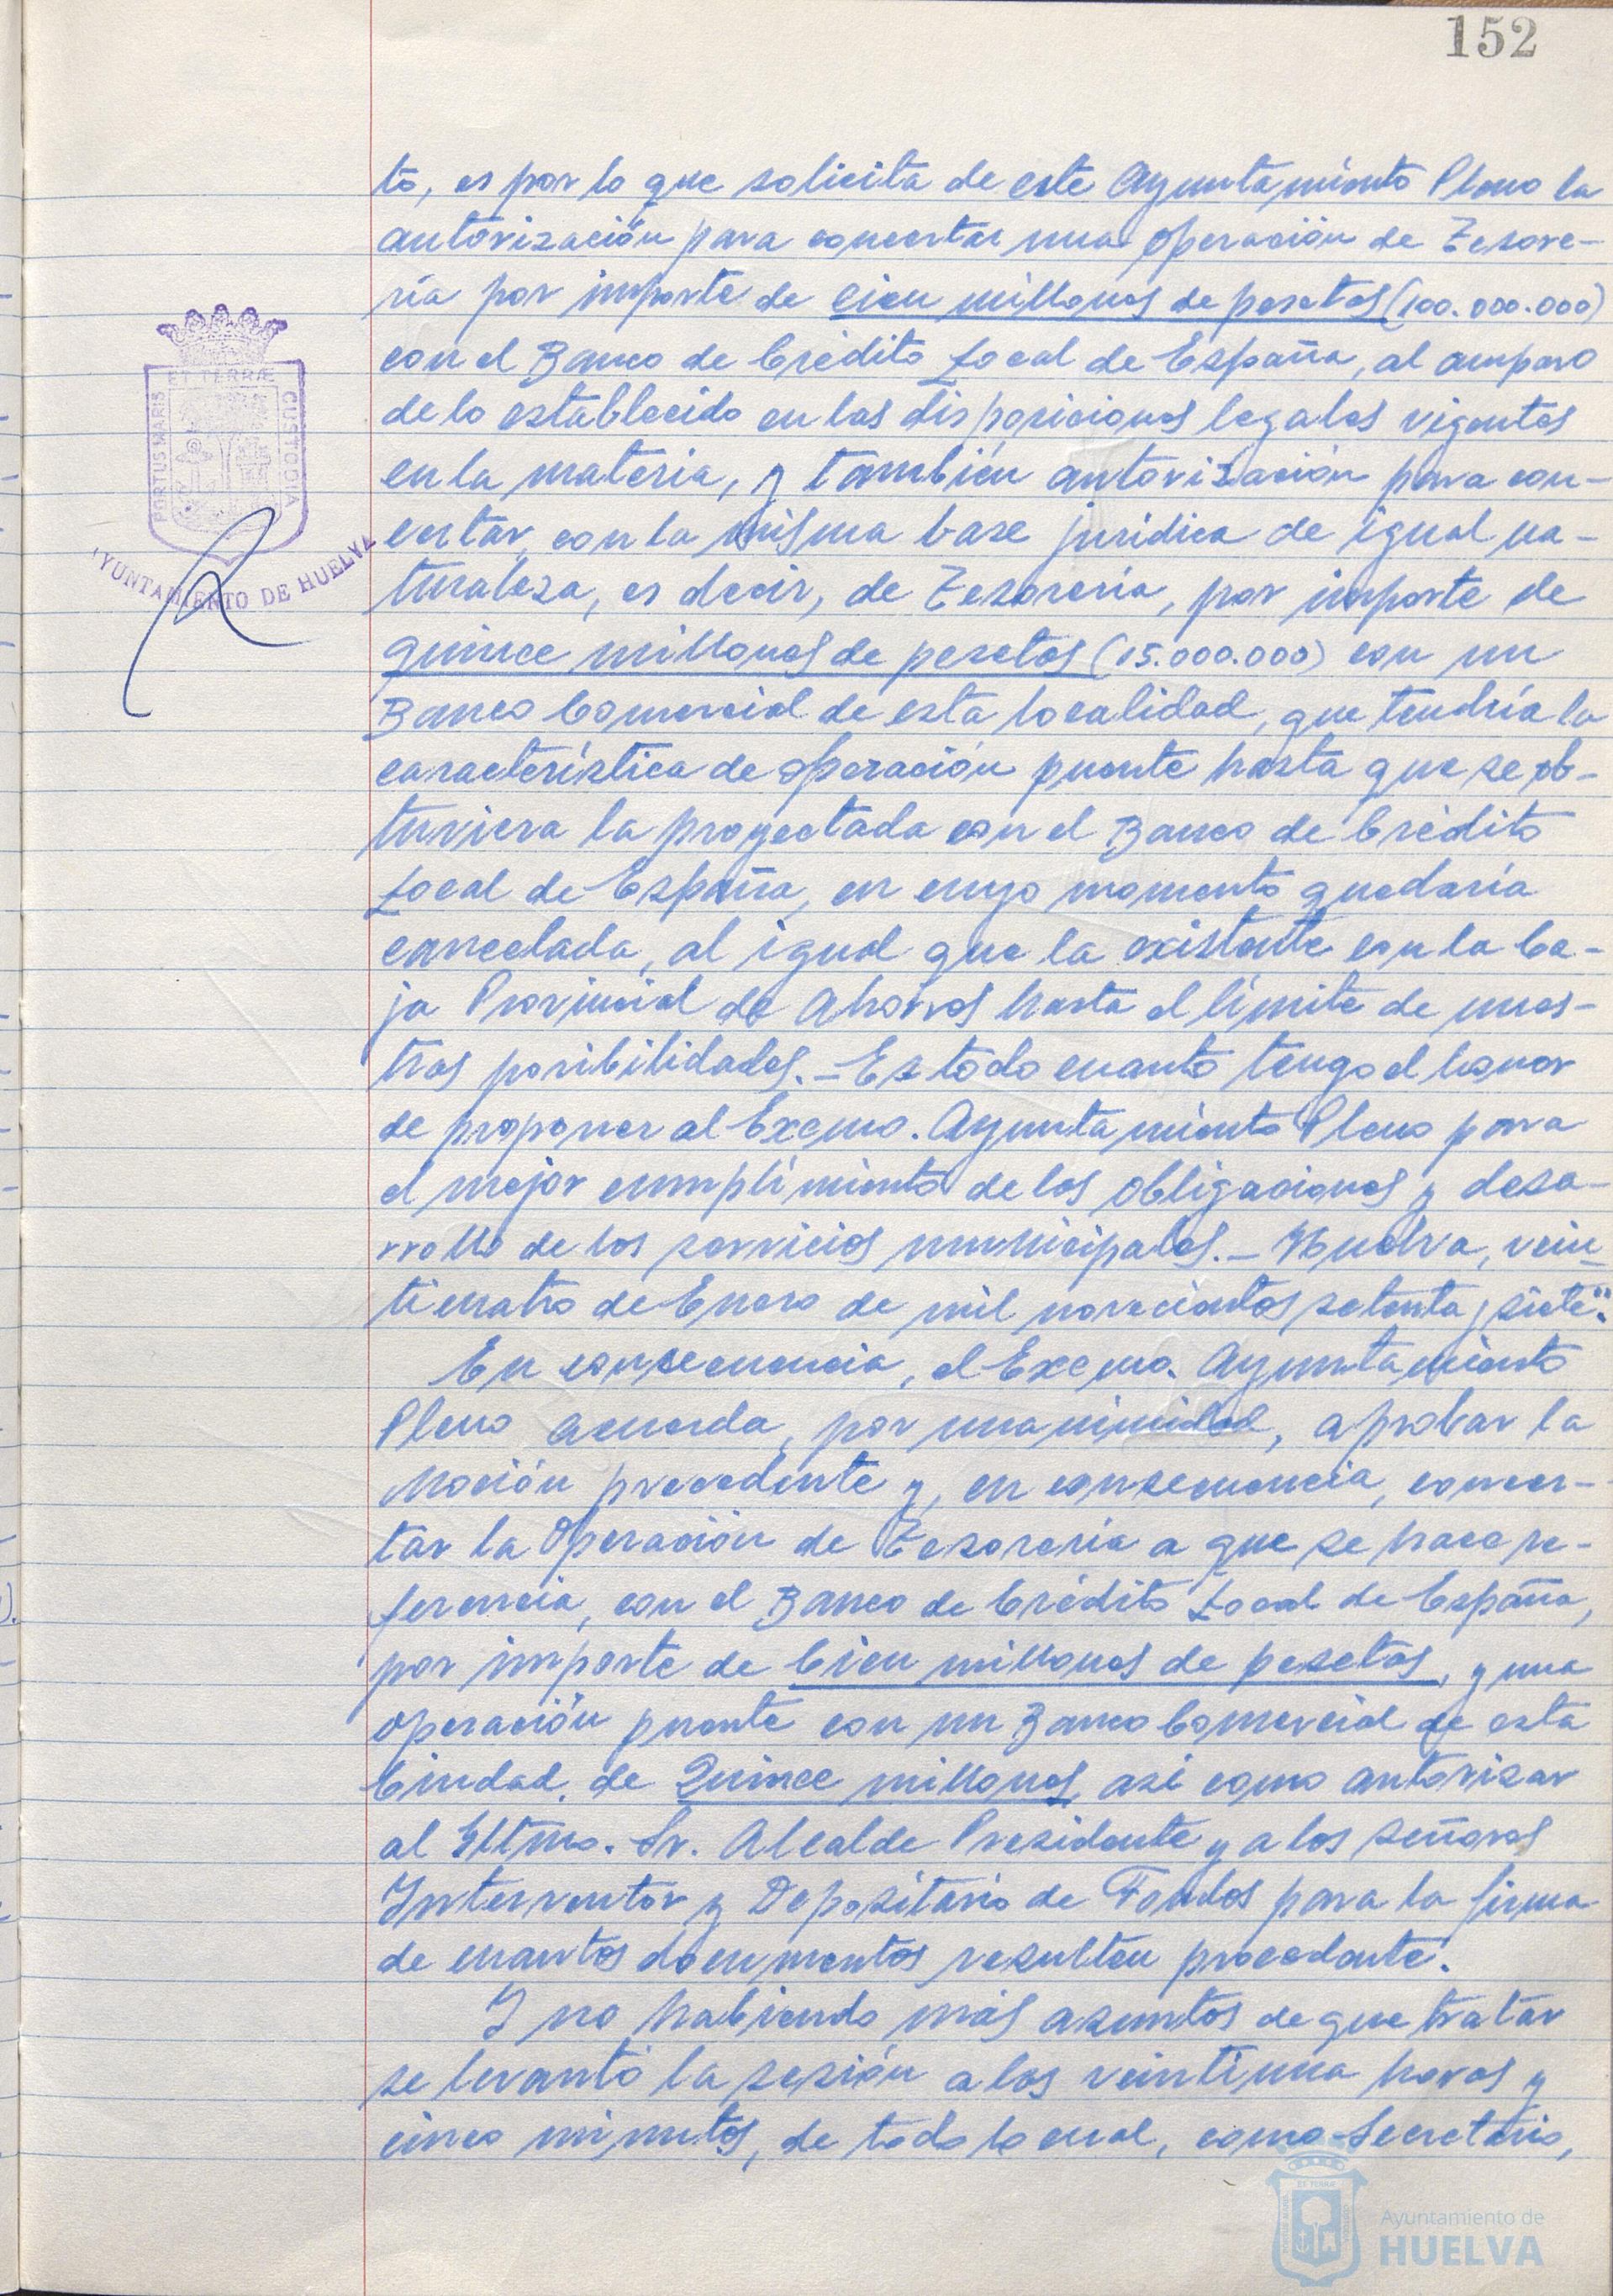 152
to, es por lo que solicita de este Ayuntamiento Pleno la
autorización para concertar una operación de Tesore-
ría por importe de cien millones de pesetas (100.000.000)
con el Banco de Crédito Local de España, al amparo
de lo establecido en las disposiciones legales vigentes
en la materia, y también autorización para con-
certar, con la misma base jurídica de igual na-
turaleza, es decir, de Tesorería, por importe de
quince millones de pesetas (15.000.000) con un
Banco Comercial de esta localidad, que tendría la
característica de operación puente hasta que se ob-
tuviera la proyectada con el Banco de Crédito
Local de España, en cuyo momento quedaría
cancelada, al igual que la existente con la Ca-
ja Provincial de Ahorros hasta el límite de nues-
tras posibilidades.- Es todo cuanto tengo el honor
de proponer al Excmo. Ayuntamiento Pleno para
el mejor cumplimiento de las obligaciones y desa-
rrollo de los servicios municipales.- Huelva, vein-
ticuatro de Enero de mil novecientos setenta y siete".
En consecuencia, el Excmo. Ayuntamiento
Pleno acuerda, por unanimidad, aprobar la
Moción precedente y, en consecuencia, concer-
tar la Operación de Tesorería a que se hace re-
ferencia, con el Banco de Crédito Local de España,
por importe de Cien millones de pesetas, y una
operación puente con un Banco Comercial de esta
Ciudad, de Quince millones, asi como autorizar
al Iltmo. Sr. Alcalde Presidente y a los señores
Interventor y Depositario de Fondos para la firma
de cuantos documentos resulten procedente.
Y no habiendo más asuntos de que tratar
se levantó la sesión a las veintiuna horas y
cinco minutos, de todo lo cual, como Secretario,
PORTUS MARIS
ET TERRÆ
CUSTODIA
AYUNTAMIENTO DE HUELVA
Ayuntamiento de
HUELVA